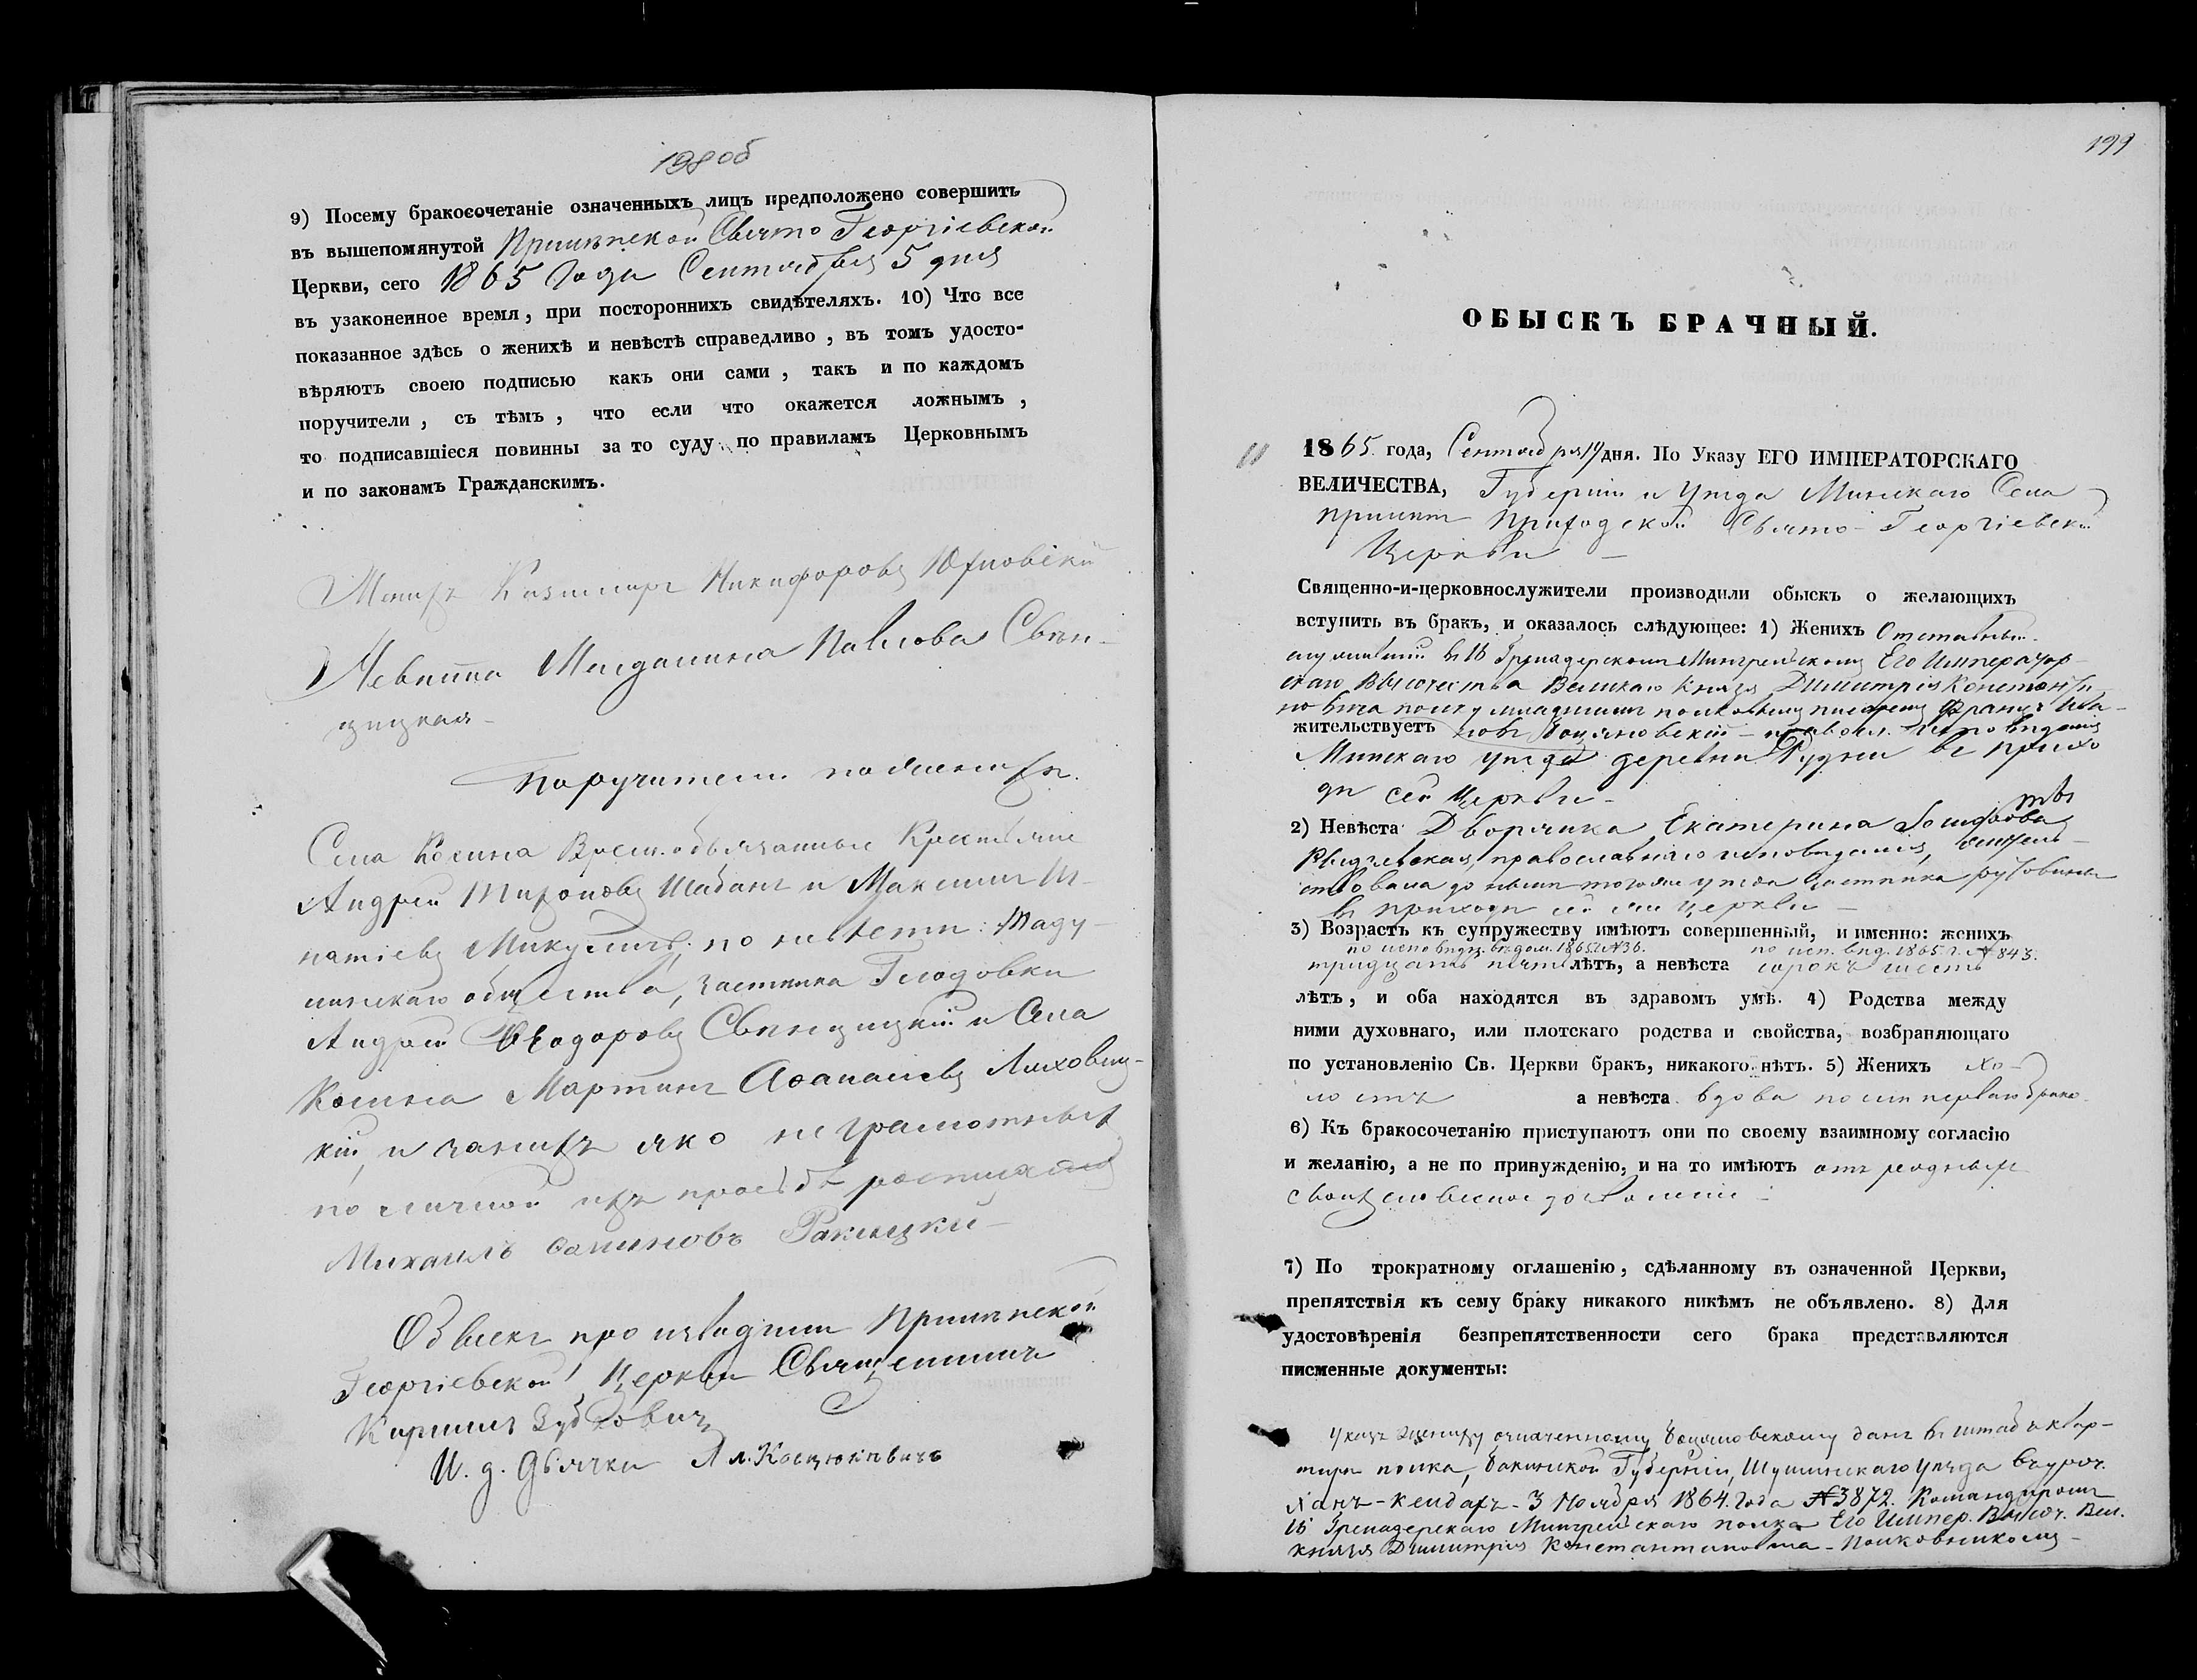 198об
9) Посему бракосочетаніе означенныхъ лицъ предположено совершить
въ вышепомянутой Прилѣпской Свято Георгіевской
Церкви, сего 1865 Года Сентября 5 дня
въ узаконенное время, при постороннихъ свидѣтеляхъ. 10) Что все
показанное здѣсь о женихѣ и невѣстѣ справедливо, въ томъ удосто-
вѣряютъ своею подписью какъ они сами, такъ и по каждомъ
поручители, съ тѣмъ, что если что окажется ложнымъ,
то подписавшіеся повинны за то суду по правиламъ Церковнымъ
и по законамъ Гражданскимъ.
Женихъ Казимиръ Никифоровъ
Невѣста Магдалина Павлова Свѣн-
цицкая
Поручители по женихѣ
Села Косина Врем. обязанные Крестьяне
Андрей Шабанъ и Максимъ Иг-
натіевъ по невѣсти:
общества, застѣнка Гледовки
Андрей Ѳеодоровъ Свѣнцицкій и Села
Косина Мартинъ Аѳанасіевъ Ляховиц-
кій, и за нихъ яко неграмотныхъ
по личной ихъ просьбѣ росписался
Михаилъ Ракицкій
Обыскъ производили Прилѣпской
Георгіевской Церкви Священникъ
Кириллъ Зубковичъ
И. д. Дьячка Ал. Костюкевичъ
199
ОБЫСКЪ БРАЧНЫЙ.
11
1865 года, Сентября 19 дня. По Указу ЕГО ИМПЕРАТОРСКАГО
ВЕЛИЧЕСТВА, Губерніи и Уѣзда Минскаго Села
Прилѣпъ Приходской Свято-Георгіевской
Церкви
Священно-и-церковнослужители производили обыскъ о желающихъ
вступить въ бракъ, и оказалось слѣдующее: 1) Женихъ Отставный
служившій въ 16 Гренадерскомъ Мингрельскомъ Его Император-
скаго Высочества Великаго Князя Димитрія Константи-
новича полку младшимъ полковымъ писаремъ Францъ Ива-
жительствуетъ новъ Боцяновскій – правосл. исповѣданія
Минскаго уѣзда деревни Рудни въ прихо
дѣ сей Церкви –
2) Невѣста Дворянка Екатерина
православнаго исповѣданія, жительс-
твовала до нынѣ того же уѣзда застѣнка
въ приходѣ сей же Церкви –
3) Возрастъ къ супружеству имѣютъ совершенный, и именно: женихъ
по исповѣдн. вѣдом. 1865 г. №36. по исп. вѣд. 1865 г. № 843.
тридцать пять лѣтъ, а невѣста сорокъ шесть
лѣтъ, и оба находятся въ здравомъ умѣ. 4) Родства между
ними духовнаго, или плотскаго родства и свойства, возбраняющаго
по установленію Св. Церкви бракъ, никакого нѣтъ. 5) Женихъ хо-
лостъ а невѣста вдова послѣ перваго брака
6) Къ бракосочетанію приступаютъ они по своему взаимному согласію
и желанію, а не по принужденію, и на то имѣютъ отъ родныхъ
своихъ словесное дозволеніе –
7) По трократному оглашенію, сдѣланному въ означенной Церкви,
препятствія къ сему браку никакого никѣмъ не объявлено. 8) Для
удостовѣренія безпрепятственности сего брака представляются
писменные документы:
Указъ жениху означенному Боцяновскому данъ въ штабъ квар-
тирѣ полка, Бакинской Губерніи, Шушинскаго уѣзда въ уроч.
Ханъ-Кендахъ – 3 Ноября 1864 Года № 3872. Командиромъ
16 Гренадерскаго Мингрельскаго полка Его Импер. Высоч. Вел.
Князя Димитрія Константиновича – Полковникомъ –